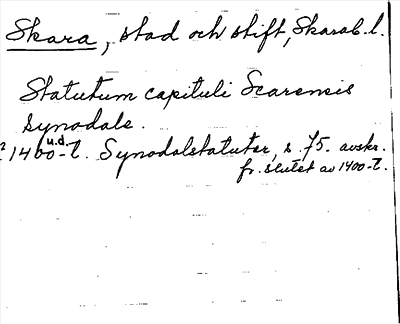 Skara, stad och stift, Skarab.l.
Statutum capituli Scarensis
synodale.
? 1400-t. u.d. Synodalstatuter, s. 75. avskr.
fr. slutet av 1400-t.